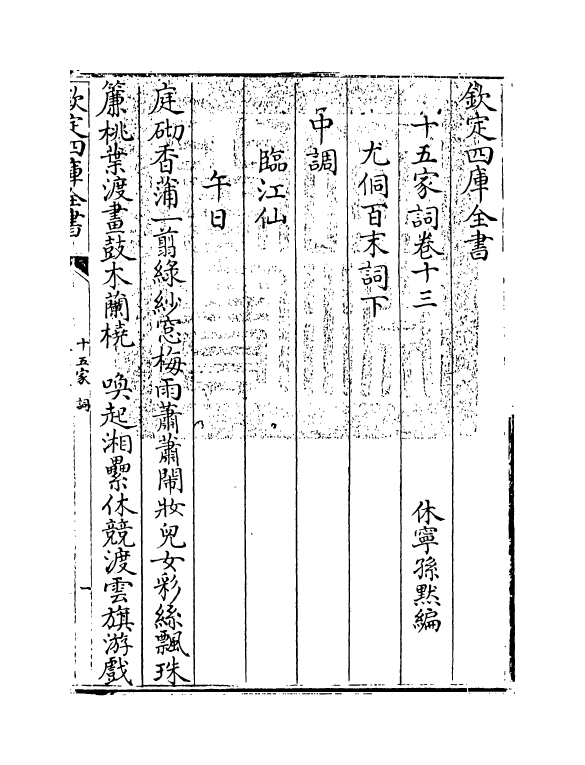 欽定四庫全書
十五家詞卷十三
休寧孫黙編
尤侗百末詞下
中調
臨江仙
午日
庭砌香蒲一翦綠紗窓梅雨蕭蕭鬧妝兒女彩絲飄珠
簾桃葉渡畫鼓木蘭橈　喚起湘纍休競渡雲旗游戲
欽定四庫全書
十五家詞
一